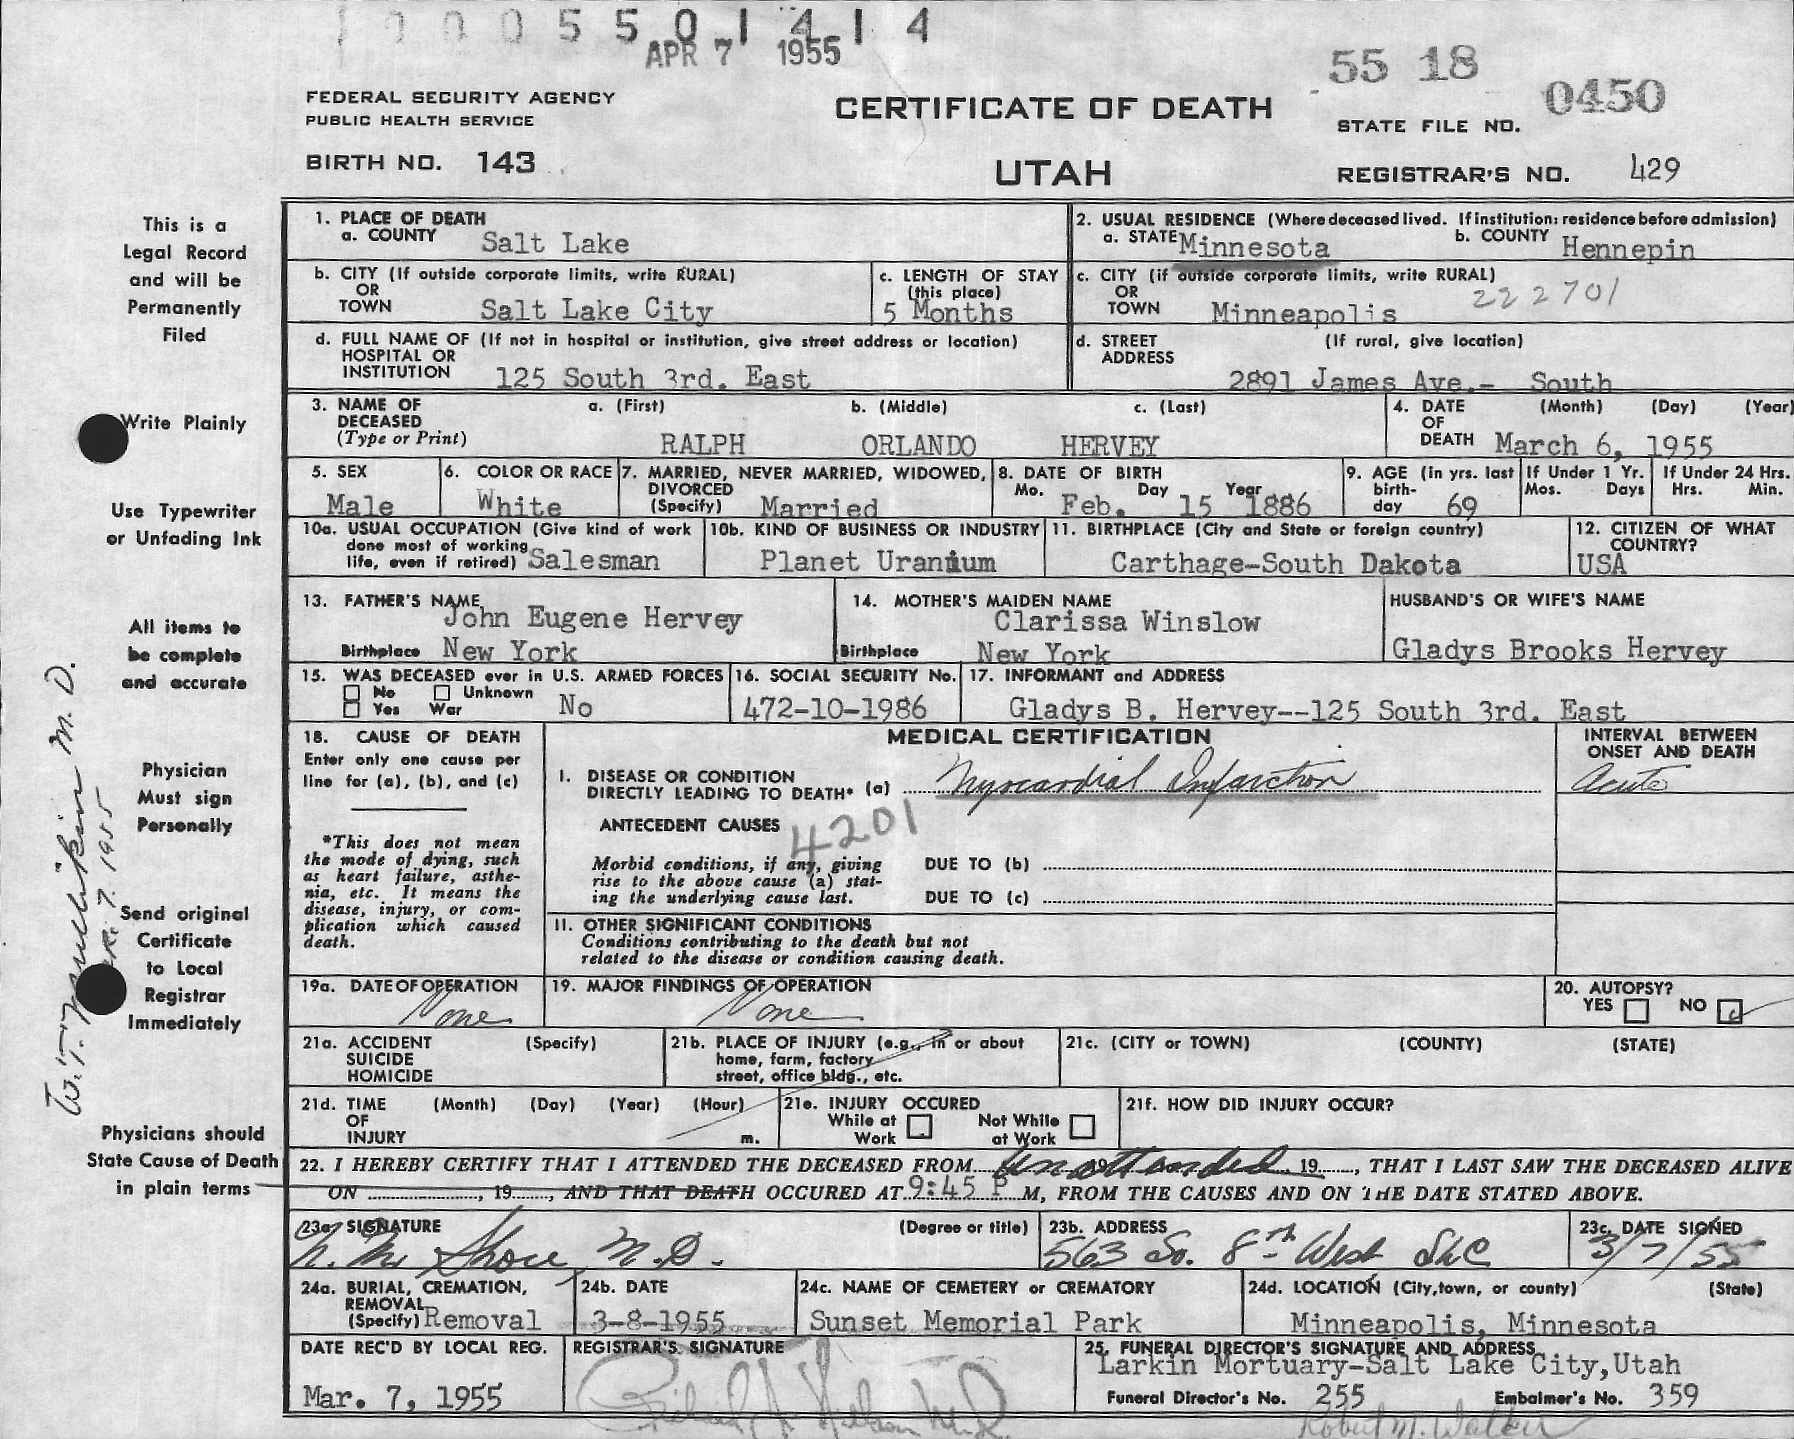 1 0 0 0 5 5 0 1 4 1 4
APR 7 1955
55 18
0450
FEDERAL SECURITY AGENCY
PUBLIC HEALTH SERVICE
CERTIFICATE OF DEATH
STATE FILE NO.
BIRTH NO. 143
UTAH
REGISTRAR'S NO. 429
This is a
Legal Record
and will be
Permanently
Filed
Write Plainly
Use Typewriter
or Unfading Ink
All items to
be complete
and accurate
Physician
Must sign
Personally
Send original
Certificate
to Local
Registrar
Immediately
Physicians should
State Cause of Death
in plain terms
M.D.
7. 1955
1. PLACE OF DEATH
a. COUNTY Salt Lake
2. USUAL RESIDENCE (Where deceased lived. If institution: residence before admission)
a. STATE Minnesota b. COUNTY Hennepin
b. CITY (If outside corporate limits, write RURAL)
OR
TOWN Salt Lake City
c. LENGTH OF STAY
(this place)
5 Months
c. CITY (if outside corporate limits, write RURAL)
OR
TOWN Minneapolis
222701
d. FULL NAME OF (If not in hospital or institution, give street address or location)
HOSPITAL OR
INSTITUTION 125 South 3rd. East
d. STREET (If rural, give location)
ADDRESS
2891 James Ave.- South
3. NAME OF a. (First) b. (Middle) c. (Last)
DECEASED
(Type or Print) RALPH ORLANDO HERVEY
4. DATE (Month) (Day) (Year)
OF
DEATH March 6, 1955
5. SEX
Male
6. COLOR OR RACE
White
7. MARRIED, NEVER MARRIED, WIDOWED,
DIVORCED
(Specify) Married
8. DATE OF BIRTH
Mo. Day Year
Feb. 15 1886
9. AGE (in yrs. last
birth-
day 69
If Under 1 Yr.
Mos. Days
If Under 24 Hrs.
Hrs. Min.
10a. USUAL OCCUPATION (Give kind of work
done most of working
life, even if retired) Salesman
10b. KIND OF BUSINESS OR INDUSTRY
Planet Uranium
11. BIRTHPLACE (City and State or foreign country)
Carthage-South Dakota
12. CITIZEN OF WHAT
COUNTRY?
USA
13. FATHER'S NAME
John Eugene Hervey
Birthplace New York
14. MOTHER'S MAIDEN NAME
Clarissa Winslow
Birthplace New York
HUSBAND'S OR WIFE'S NAME
Gladys Brooks Hervey
15. WAS DECEASED ever in U.S. ARMED FORCES
No Unknown
Yes War No
16. SOCIAL SECURITY No.
472-10-1986
17. INFORMANT and ADDRESS
Gladys B. Hervey--125 South 3rd. East
18. CAUSE OF DEATH
Enter only one cause per
line for (a), (b), and (c)
*This does not mean
the mode of dying, such
as heart failure, asthe-
nia, etc. It means the
disease, injury, or com-
plication which caused
death.
MEDICAL CERTIFICATION
INTERVAL BETWEEN
ONSET AND DEATH
I. DISEASE OR CONDITION
DIRECTLY LEADING TO DEATH* (a) Myocardial Infarction
Acute
ANTECEDENT CAUSES
4201
Morbid conditions, if any, giving
rise to the above cause (a) stat-
ing the underlying cause last.
DUE TO (b)
DUE TO (c)
II. OTHER SIGNIFICANT CONDITIONS
Conditions contributing to the death but not
related to the disease or condition causing death.
19a. DATE OF OPERATION
None
19. MAJOR FINDINGS OF OPERATION
None
20. AUTOPSY?
YES NO
21a. ACCIDENT (Specify)
SUICIDE
HOMICIDE
21b. PLACE OF INJURY (e.g., in or about
home, farm, factory
street, office bldg., etc.
21c. (CITY or TOWN) (COUNTY) (STATE)
21d. TIME (Month) (Day) (Year) (Hour)
OF
INJURY m.
21e. INJURY OCCURED
While at Not While
Work at Work
21f. HOW DID INJURY OCCUR?
22. I HEREBY CERTIFY THAT I ATTENDED THE DECEASED FROM Unattended 19 19, THAT I LAST SAW THE DECEASED ALIVE
ON , 19 , AND THAT DEATH OCCURED AT 9:45 P M, FROM THE CAUSES AND ON THE DATE STATED ABOVE.
23a. SIGNATURE (Degree or title)
M.D.
23b. ADDRESS
563 So. 8th West SLC
23c. DATE SIGNED
3/7/55
24a. BURIAL, CREMATION,
REMOVAL
(Specify) Removal
24b. DATE
3-8-1955
24c. NAME OF CEMETERY or CREMATORY
Sunset Memorial Park
24d. LOCATION (City, town, or county) (State)
Minneapolis, Minnesota
DATE REC'D BY LOCAL REG.
Mar. 7, 1955
REGISTRAR'S SIGNATURE
25. FUNERAL DIRECTOR'S SIGNATURE AND ADDRESS
Larkin Mortuary-Salt Lake City, Utah
Funeral Director's No. 255 Embalmer's No. 359
Robert M. Walker